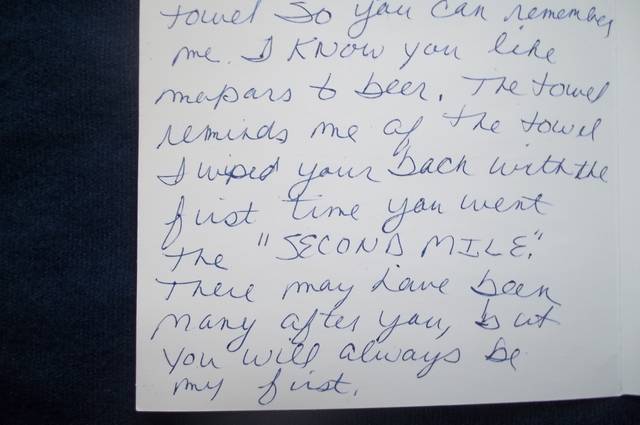 towel so you can remember
me. I know you like
mopars & beer. The towel
reminds me of the towel
I wiped your back with the
first time you went
the "SECOND MILE."
There may have been
many after you, but
you will always be
my first.